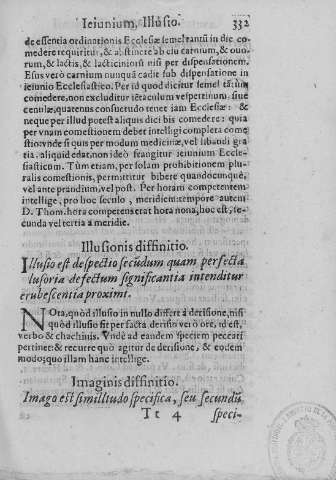 Ieiunium, Illusio. 332
de essentia ordinationis Ecclesiæ semel tantũ in die comedere
requiritur, & abstinere ab esu carnium, & ouorum,
& lactis, & lacticiniorũ nisi per dispensationem.
Esus verò carnium nunquã cadit sub dispensatione in
ieiunio Ecclesiastico. Per id quod dicitur semel tãtũm
comedere, non excluditur iẽtaculum vespertinum, siue
cenulæ, quatenus consuetudo tenet iam Ecclesiæ: &
neque per illud potest aliquis dici bis comedere: quia
per vnam comestionem debet intelligi completa comestio:
vnde si quis per modum medicinæ, vel libandi gratia.
aliquid edat, non ideò frangitur ieiunium Ecclesiasticum.
Tũm etiam, per solam prohibitionem pluralis
comestionis, permittitur bibere quandocunquè,
vel ante prandium, vel post. Per horam competentem
intellige, pro hoc seculo, meridiem: tempore autem
D. Thom. hora competens erat hora nona, hoc est, secunda
vel tertia à meridie.
Illusionis diffinitio.
Illusio est despectio secũdum quam perfecta
lusoria defectum significantia intenditur
erubescentia proximi.
NOta, quòd illusio in nullo differt à derisione, nisi
quòd illusio sit per facta derisio verò ore, id est,
verbo & chachinis. Vndè ad eandem speciem peccati
pertinet: & recurre quò agitur de derisione, & eodem
modo; quo illam hanc intellige.
Imaginis diffinitio.
Imago est similitudo specifica, seu secundũ
Tt 4 speci-